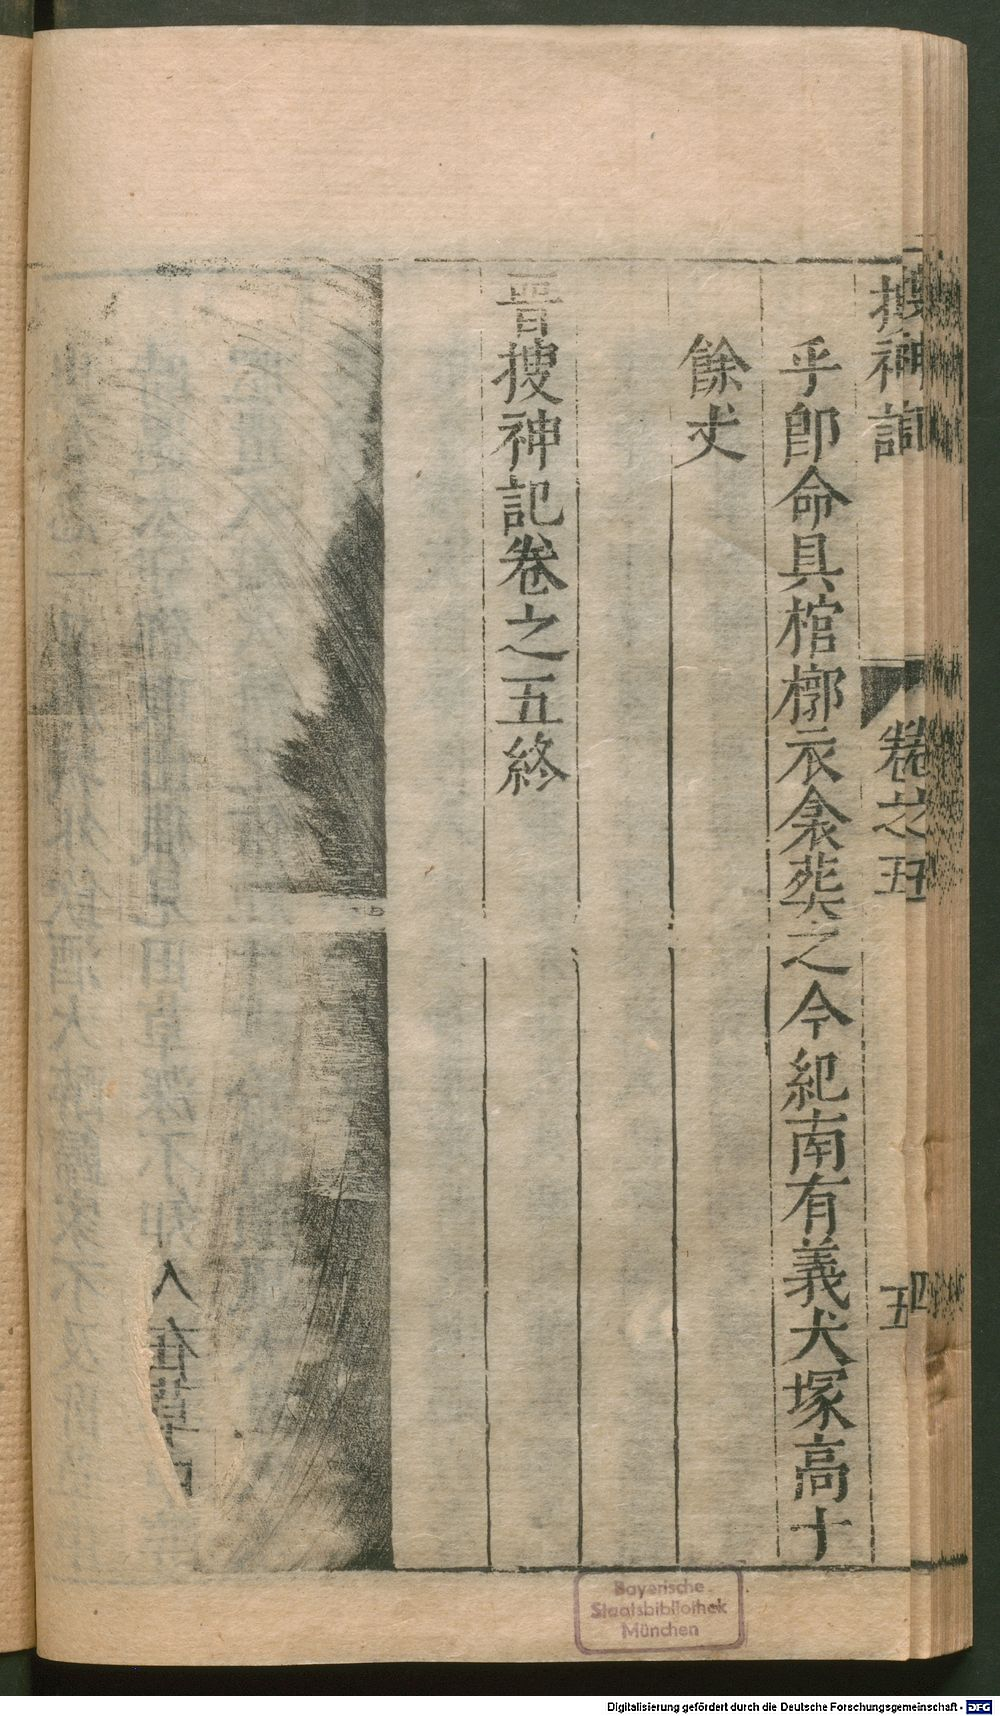 搜神記
卷之五
五
乎即命具棺槨衣衾葬之今紀南有義犬塚高十
餘丈
晋搜神記卷之五終
Bayerische
Staatsbibliothek
München
Digitalisierung gefördert durch die Deutsche Forschungsgemeinschaft - DFG